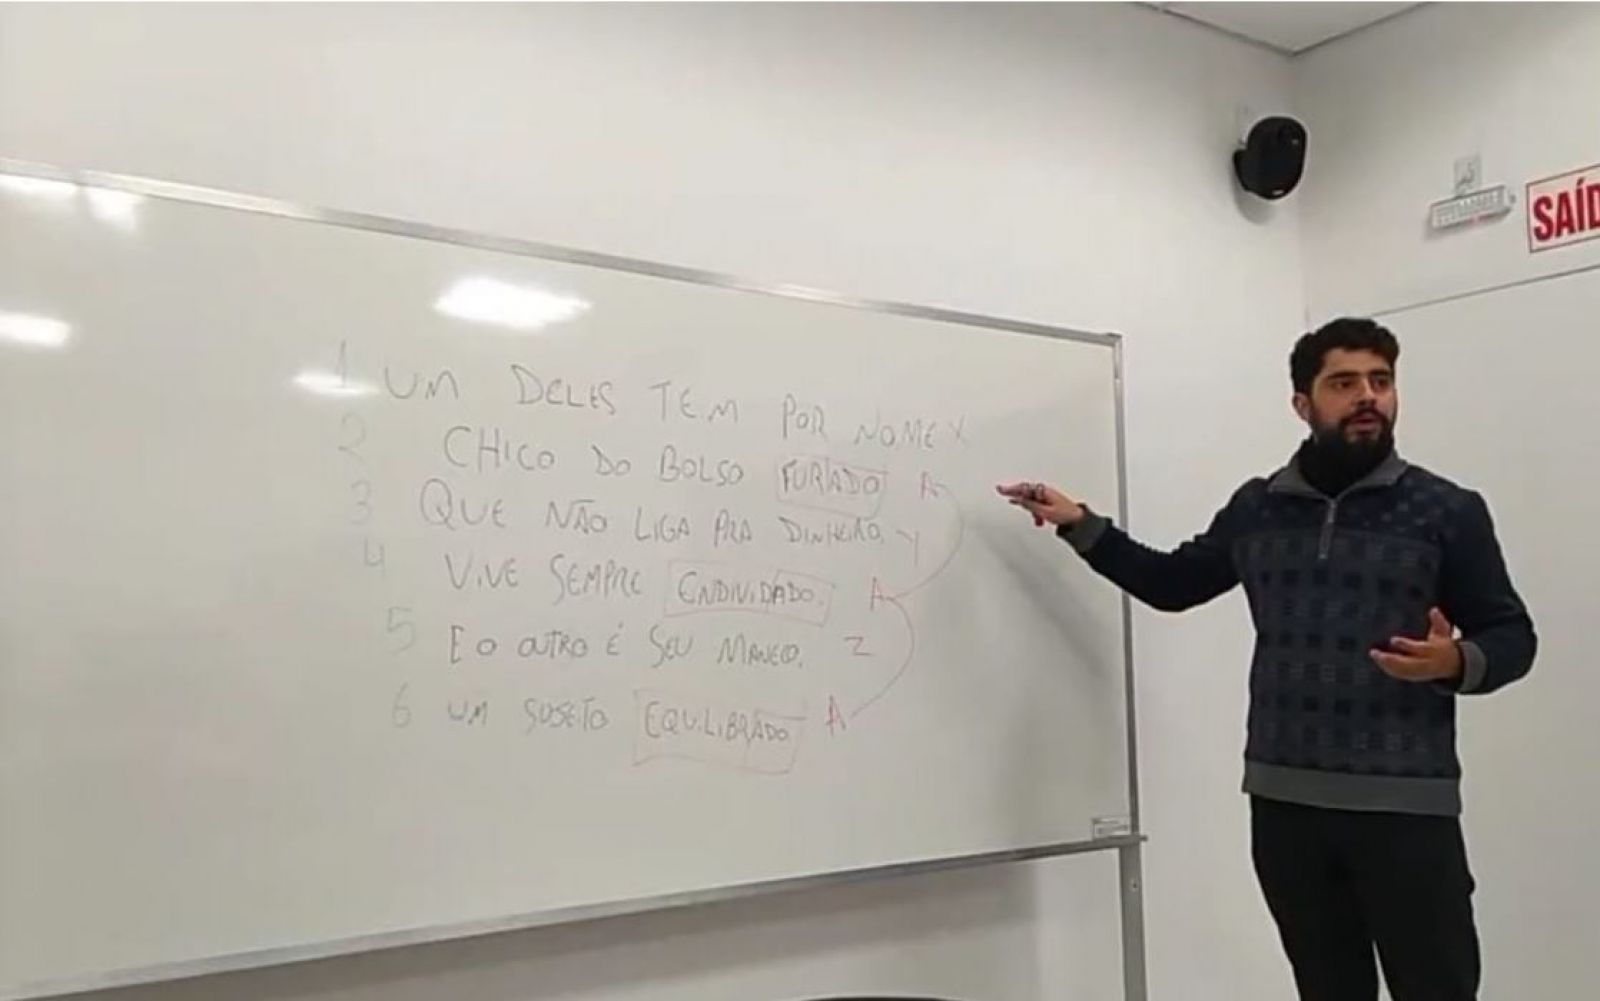 1 UM DELES TEM POR NOME X
2 CHICO DO BOLSO FURADO A
3 QUE NÃO LIGA PRA DINHEIRO, Y
4 VIVE SEMPRE ENDIVIDADO. A
5 E O OUTRO É SEU MANECO, Z
6 UM SUJEITO EQUILIBRADO A
SAÍD